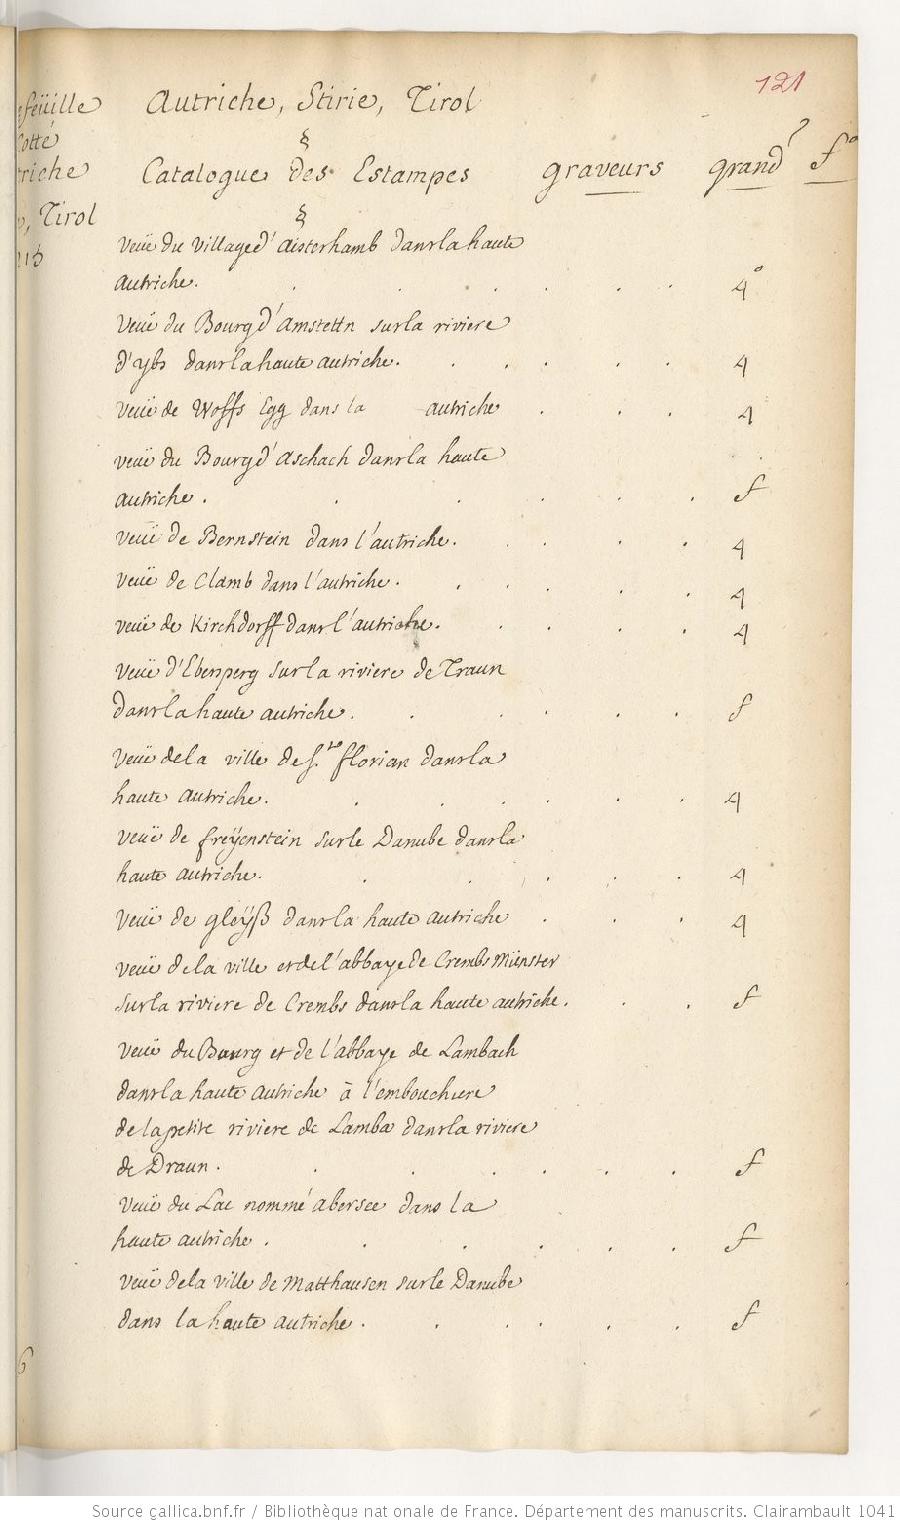 121
feüille
Autriche, Stirie, Tirol
otté
§
riche
Catalogue des Estampes graveurs grandr fo
, Tirol
§
veüe du village d'aisterhamb dans la haute
autriche. 4o
Veüe du Bourg d'amstettn sur la riviere
d'ybs dans la haute autriche. 4
veüe de Woffs Egg dans la autriche 4
veüe du Bourg d'aschach dans la haute
autriche. f
veüe de Bernstein dans l'autriche. 4
veüe de Clamb dans l'autriche. 4
veüe de Kirchdorff dans l'autriche. 4
veüe d'Ebersperg sur la riviere de Traun
dans la haute autriche. f
veüe de la ville de St florian dans la
haute autriche. 4
veüe de freÿenstein sur le Danube dans la
haute autriche. 4
veüe de gleÿß dans la haute autriche 4
veüe de la ville et de l'abbaye de Crembs Münster
sur la riviere de Crembs dans la haute autriche. f
veüe du Bourg et de l'abbaye de Lambach
dans la haute autriche à l'embouchure
de la petite riviere de Lamba dans la riviere
de Draun. f
veüe du Lac nommé abersee dans la
haute autriche. f
veüe de la ville de Matthausen sur le Danube
dans la haute autriche. f
Source gallica.bnf.fr / Bibliothèque nationale de France. Département des manuscrits. Clairambault 1041